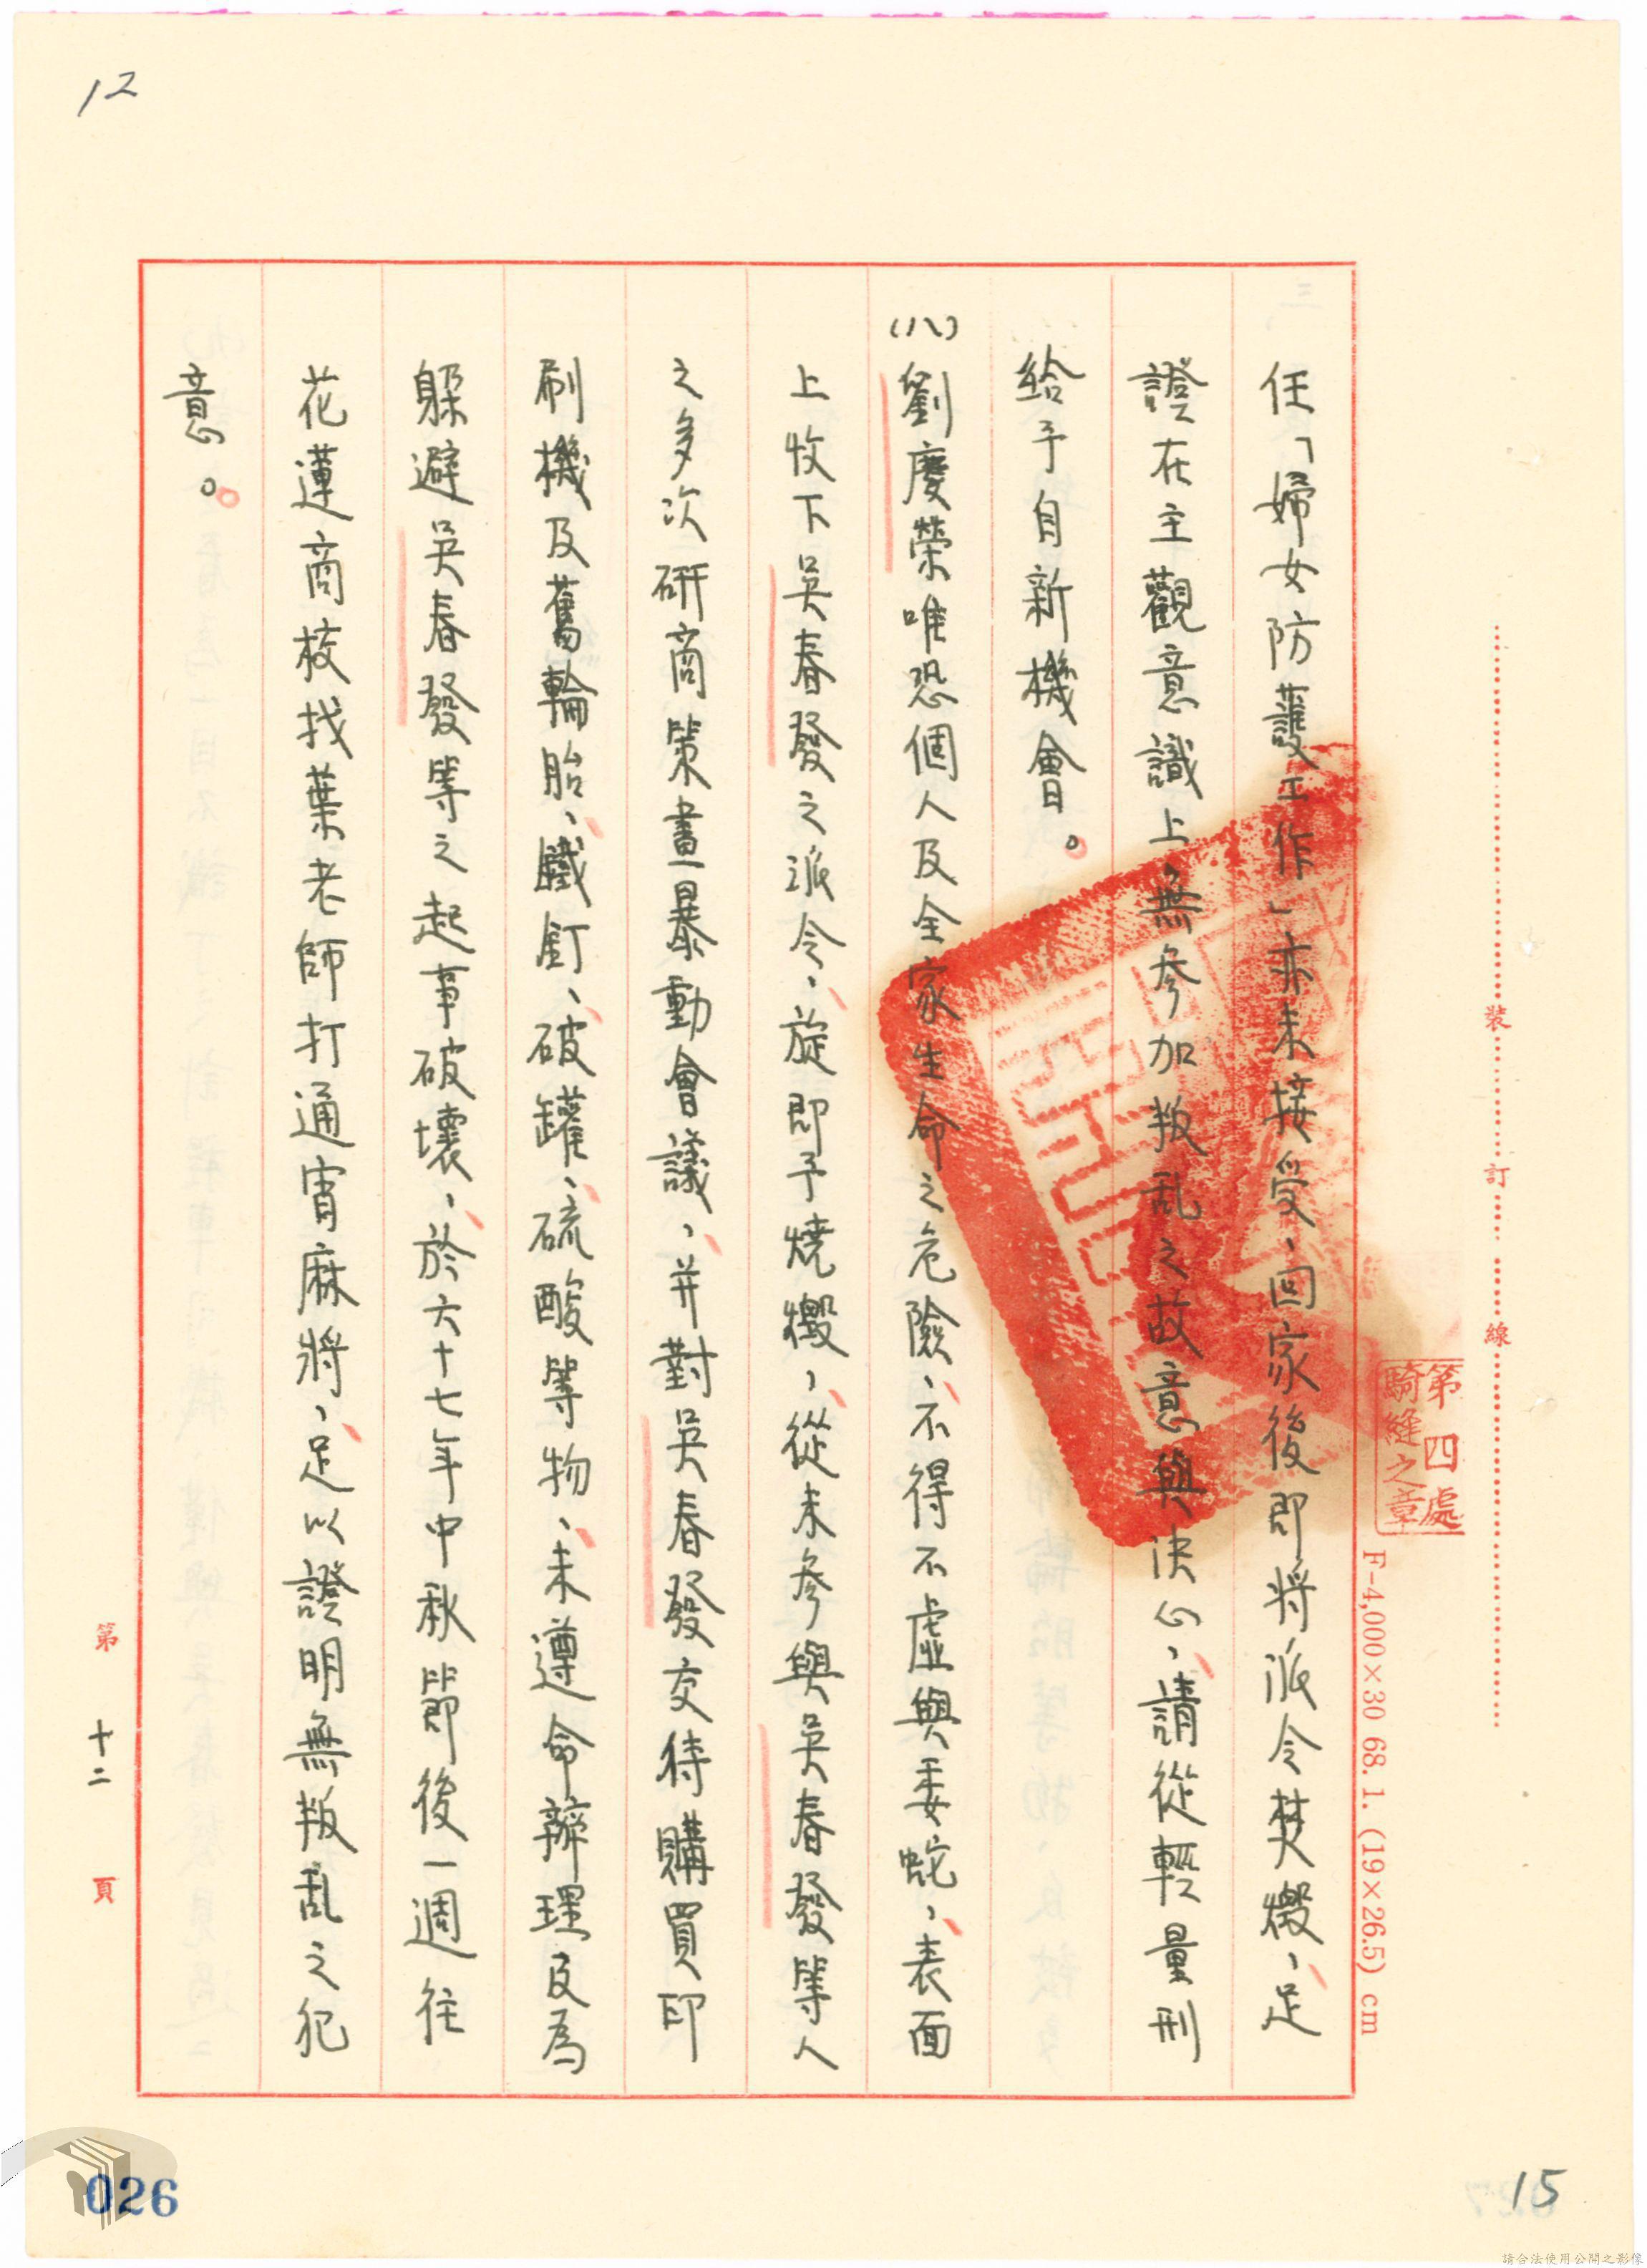 12
任「婦女防護工作」亦未接受、回家後即將派令焚燬、足
證在主觀意識上、無參加叛乱之故意與決心、請從輕量刑
給予自新機會。
(八)劉慶榮唯恐個人及全家生命之危險、不得不虛與委蛇、表面
上收下吳春發之派令、旋即予燒燬、從未參與吳春發等人
之多次研商策畫暴動會議、并對吳春發交待購買印
刷機及舊輪胎、鐵釘、破罐、硫酸等物、未遵命辦理及為
躲避吳春發等之起事破壞、於六十七年中秋節後一週往
花蓮商校找葉老師打通宵麻將、足以證明無叛乱之犯
意。
裝 訂 線
第四處
騎縫之章
F-4,000×30 68. 1. (19×26.5) cm
第 十二 頁
026
15
請合法使用公開之影像